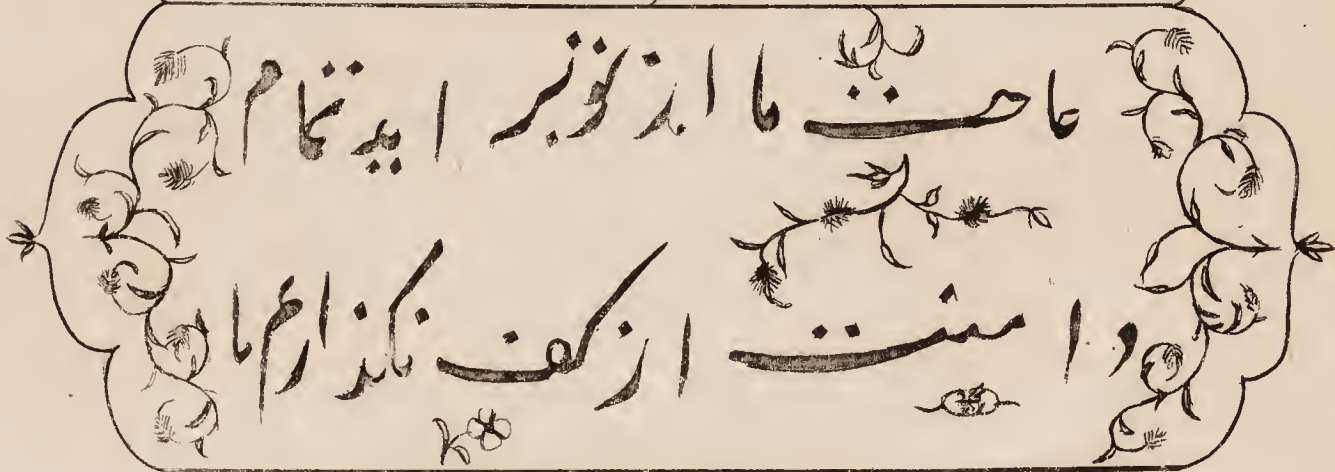 حاجت ما از تو بر اید تمام
دامنت از کف نکذارم ما